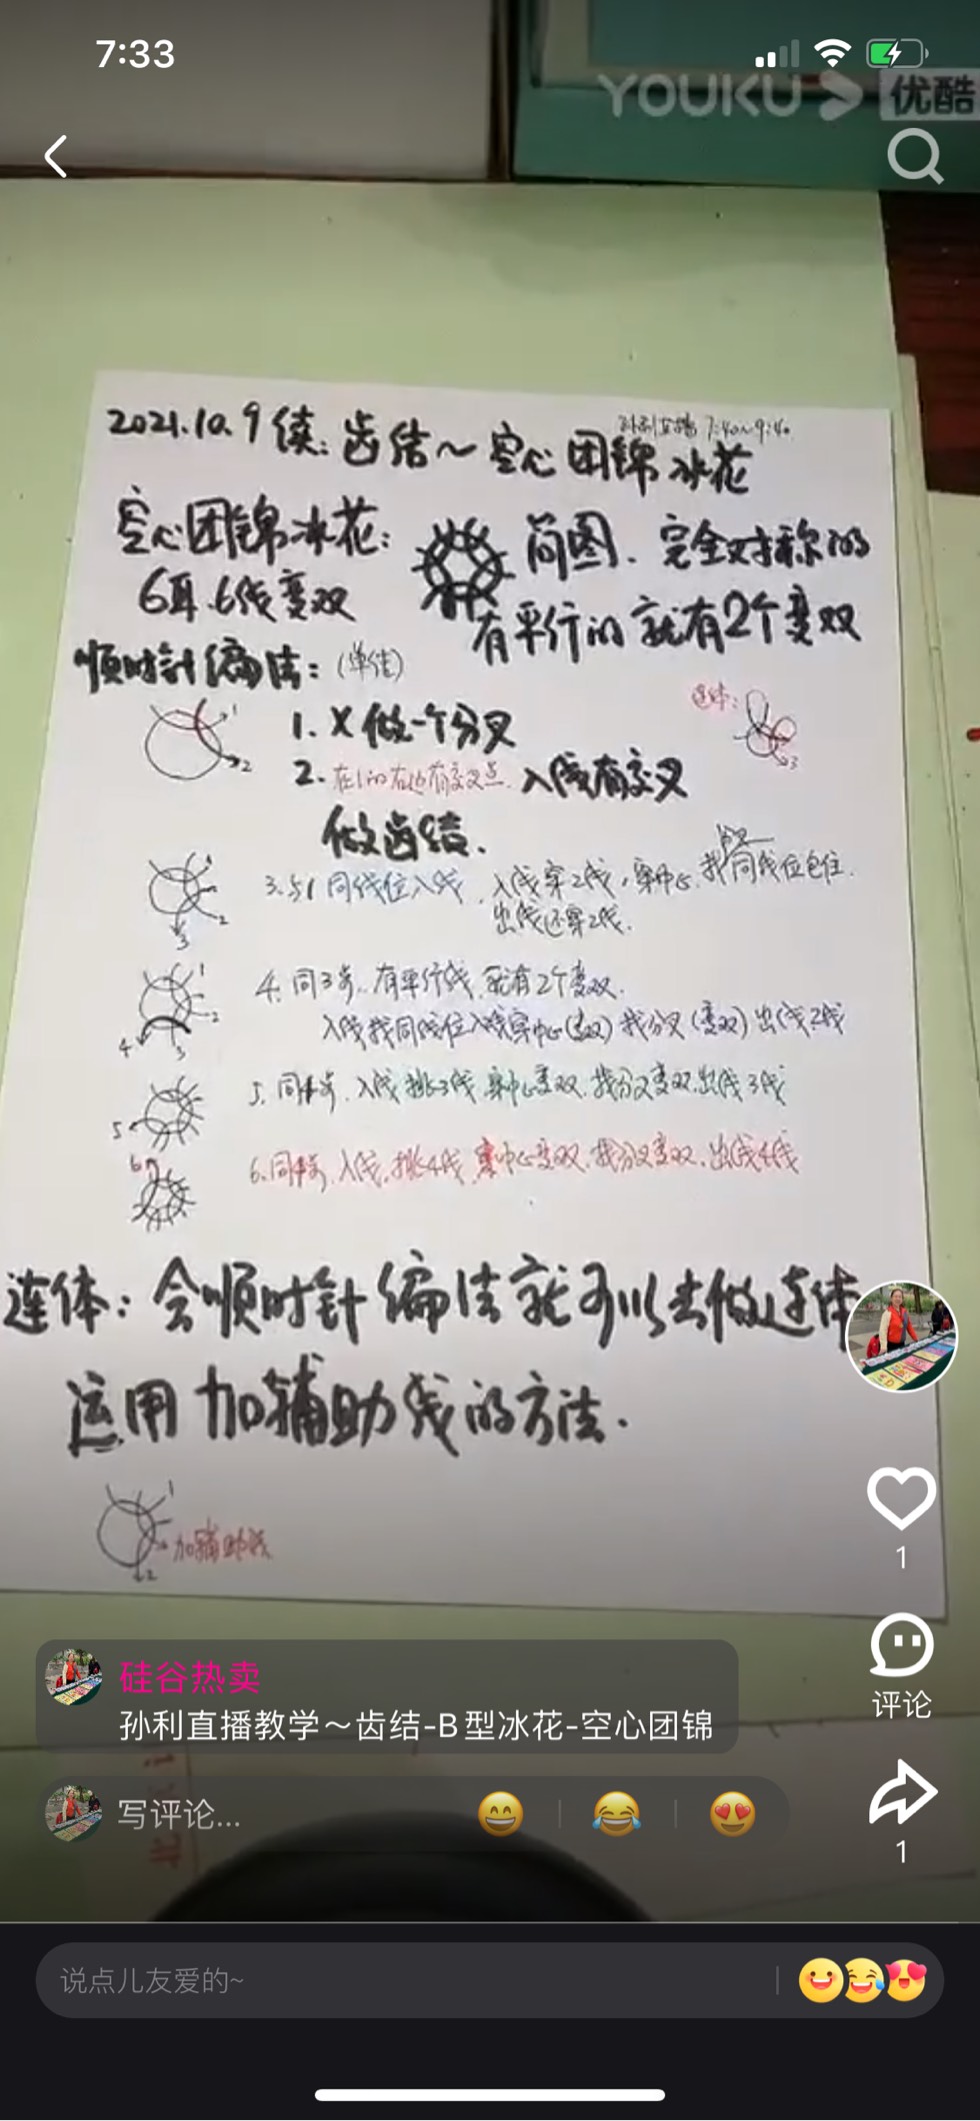 7:33
YOUKU 优酷
孙利直播 7:40~9:40
2021.10.9 续: 齿结~空心团锦冰花
空心团锦冰花:
6耳.6线变双
简图. 完全对称的
有平行的就有2个变双
顺时针编法: (单结)
连体:
3
1
2
1. X 做一个分叉
2. 在1的右边有交叉点. 入线有交叉
做齿结.
1
2
3
3. 与1同线位入线. 入线穿2线, 穿中心. 我同线位包住.
出线还穿2线.
1
2
3
4
4. 同3步. 有平行线. 就有2个变双.
入线找同线位入线穿中心(变双) 找分叉(变双) 出线2线
5
5. 同4步. 入线挑3线 穿中心变双. 找分叉变双. 出线3线
6
6. 同4步. 入线. 挑4线. 穿中心变双. 找分叉变双. 出线4线
连体: 会顺时针编法就可以去做连体
运用加辅助线的方法.
1
2
加辅助线
1
硅谷热卖
孙利直播教学～齿结-B型冰花-空心团锦
评论
写评论...
1
说点儿友爱的~